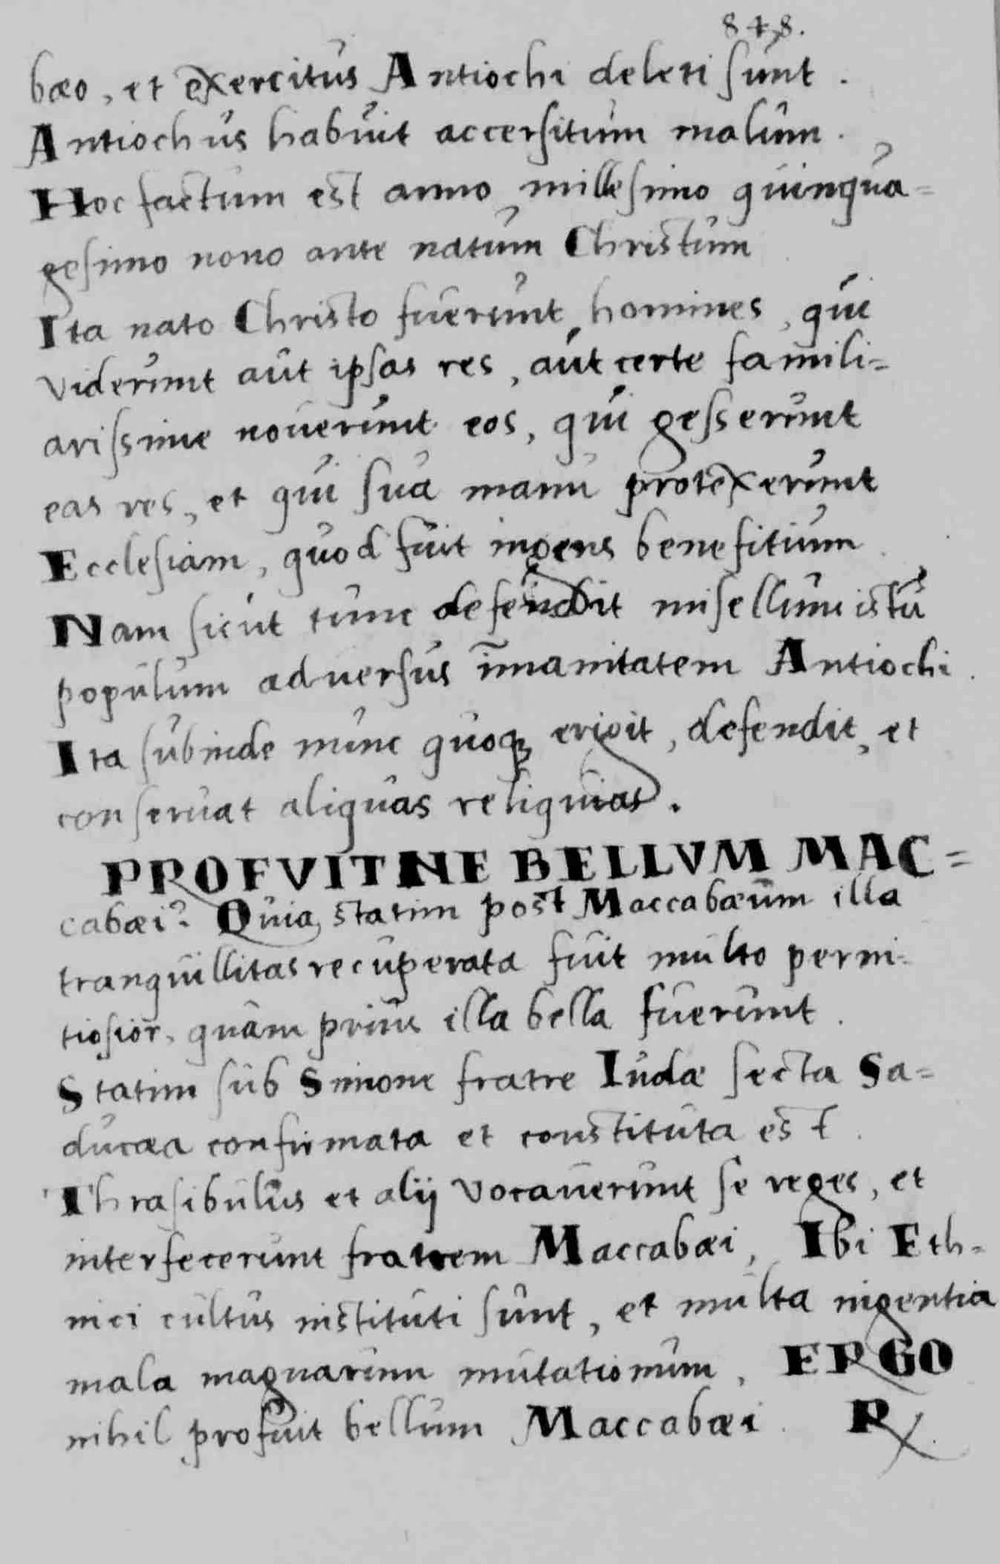 848.
bæo, et exercitus Antiochi deleti sunt.
Antiochus habuit accersitum malum.
Hoc factum est anno millesimo quinqua=
gesimo nono ante natum Christum
Ita nato Christo fuerunt homines, qui
viderunt aut ipsas res, aut certe famili=
arissime noverunt eos, qui gesserunt
eas res, et qui sua manu protexerunt
Ecclesiam, quod fuit ingens benefitium
Nam sicut tunc defendit misellum istū
populum adversus īmanitatem Antiochi.
Ita subinde nunc quoqꝫ erigit, defendit, et
conservat aliquas reliquias.
PROFVITNE BELLVM MAC=
cabæi? Quia statim post Maccabæum illa
tranquillitas recuperata fuit multo perni=
tiosior, quam prius illa bella fuerunt.
Statim sub Simone fratre Iudæ secta Sa=
ducæa confirmata et constituta est.
Thrasibulus et alij vocaverunt se reges, et
interfecerunt fratrem Maccabæi, Ibi Eth=
nici cultus instituti sunt, et multa ingentia
mala magnarum mutationum, ERGO
nihil profuit bellum Maccabæi. ℞.